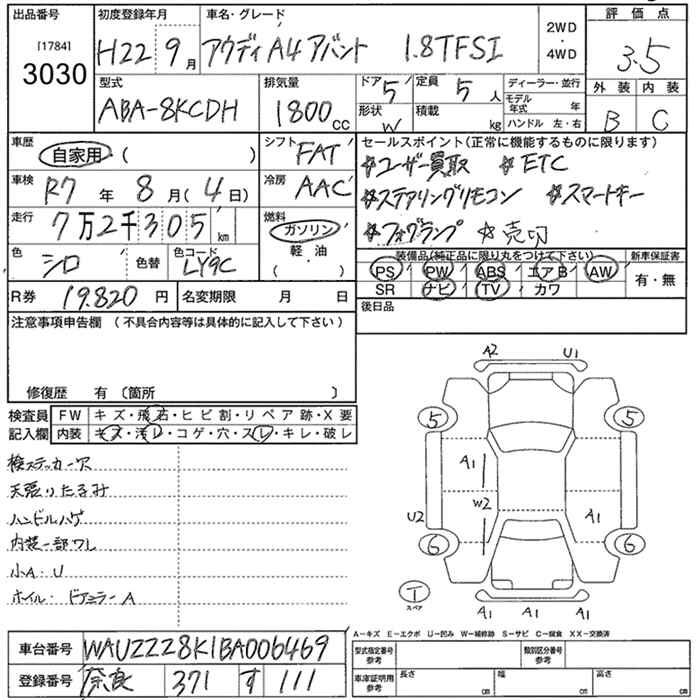 出品番号
[1784]
3030
初度登録年月
H22 9月
車名・グレード
アウディA4アバント 1.8TFSI
2WD
・
4WD
評価点
3.5
外装 内装
B C
型式
ABA-8KCDH
排気量
1800cc
ドア 5
形状 W
定員 5人
積載 kg
ディーラー・並行
モデル年式 年
ハンドル 左・右
車歴
自家用・( )
車検
R7年 8月(4日)
走行
7万2千305km
色
シロ
色替
色コード
LY9C
シフト
FAT
冷房
AAC
燃料
ガソリン
軽・油
( )
セールスポイント(正常に機能するものに限ります)
☆ユーザー買取 ☆ETC
☆ステアリングリモコン ☆スマートキー
☆フォグランプ ☆売切
装備品(純正品に限り丸をつけて下さい)
PS PW ABS エアB AW
SR ナビ TV カワ
新車保証書
有・無
R券 19,820円
名変期限 月 日
後日品
注意事項申告欄 (不具合内容等は具体的に記入して下さい)
修復歴 有 〔箇所 〕
検査員
記入欄
FW キズ・飛石・ヒビ割・リペア跡・X要
内装 キズ・汚レ・コゲ・穴・スレ・キレ・破レ
検ステッカー穴
天張りたるみ
ハンドルハゲ
内装一部ワレ
小A・U
ホイル・ドアミラーA
A2 U1
5 5
A1
W2
U2 A1
6 6
T
スペア
A1 A1 A1
A-キズ E-エクボ U-凹み W-補修跡 S-サビ C-腐食 XX-交換済
車台番号 WAUZZZ8K1BA006469
登録番号 奈良 371 す 111
型式指定番号
参考
類別区分番号
参考
車庫証明用
参考
長さ cm
幅 cm
高さ cm